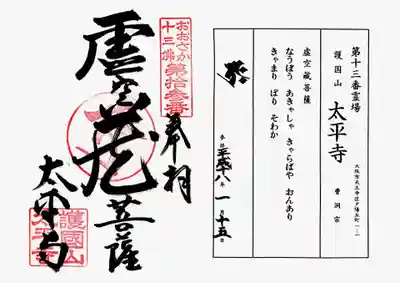 おおさか
十三佛
第拾参番
奉拝
虚空蔵菩薩
太平寺
護國山
太平寺
第十三番霊場
護国山 太平寺
大阪市天王寺区夕陽丘町一−一
曹洞宗
虚空蔵菩薩
なうぼう あきゃしゃ きゃらばや おんあり
きゃまり ぼり そわか
参拝 平成十八年 一月十五日